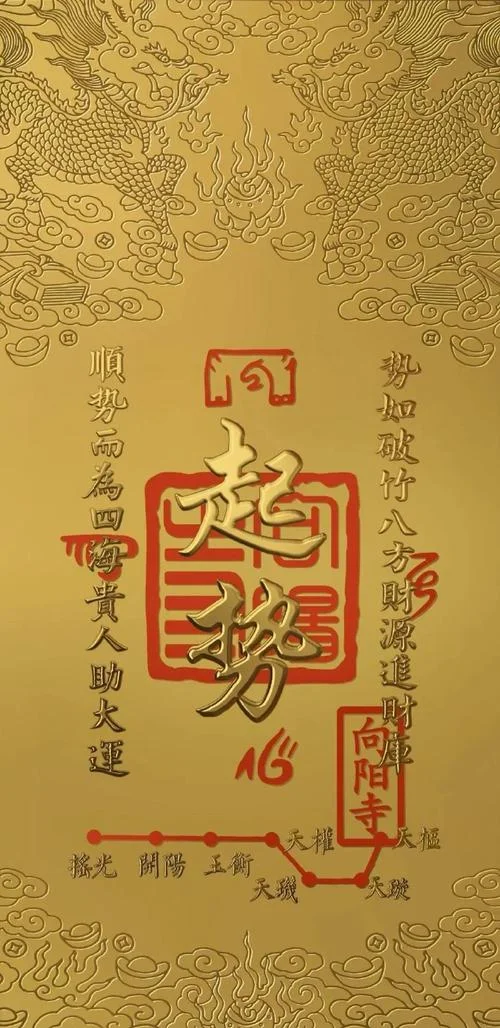 起势
勢如破竹八方財源進財庫
順势而為四海貴人助大運
向阳寺
天樞
天璇
天璣
天權
玉衡
開陽
搖光